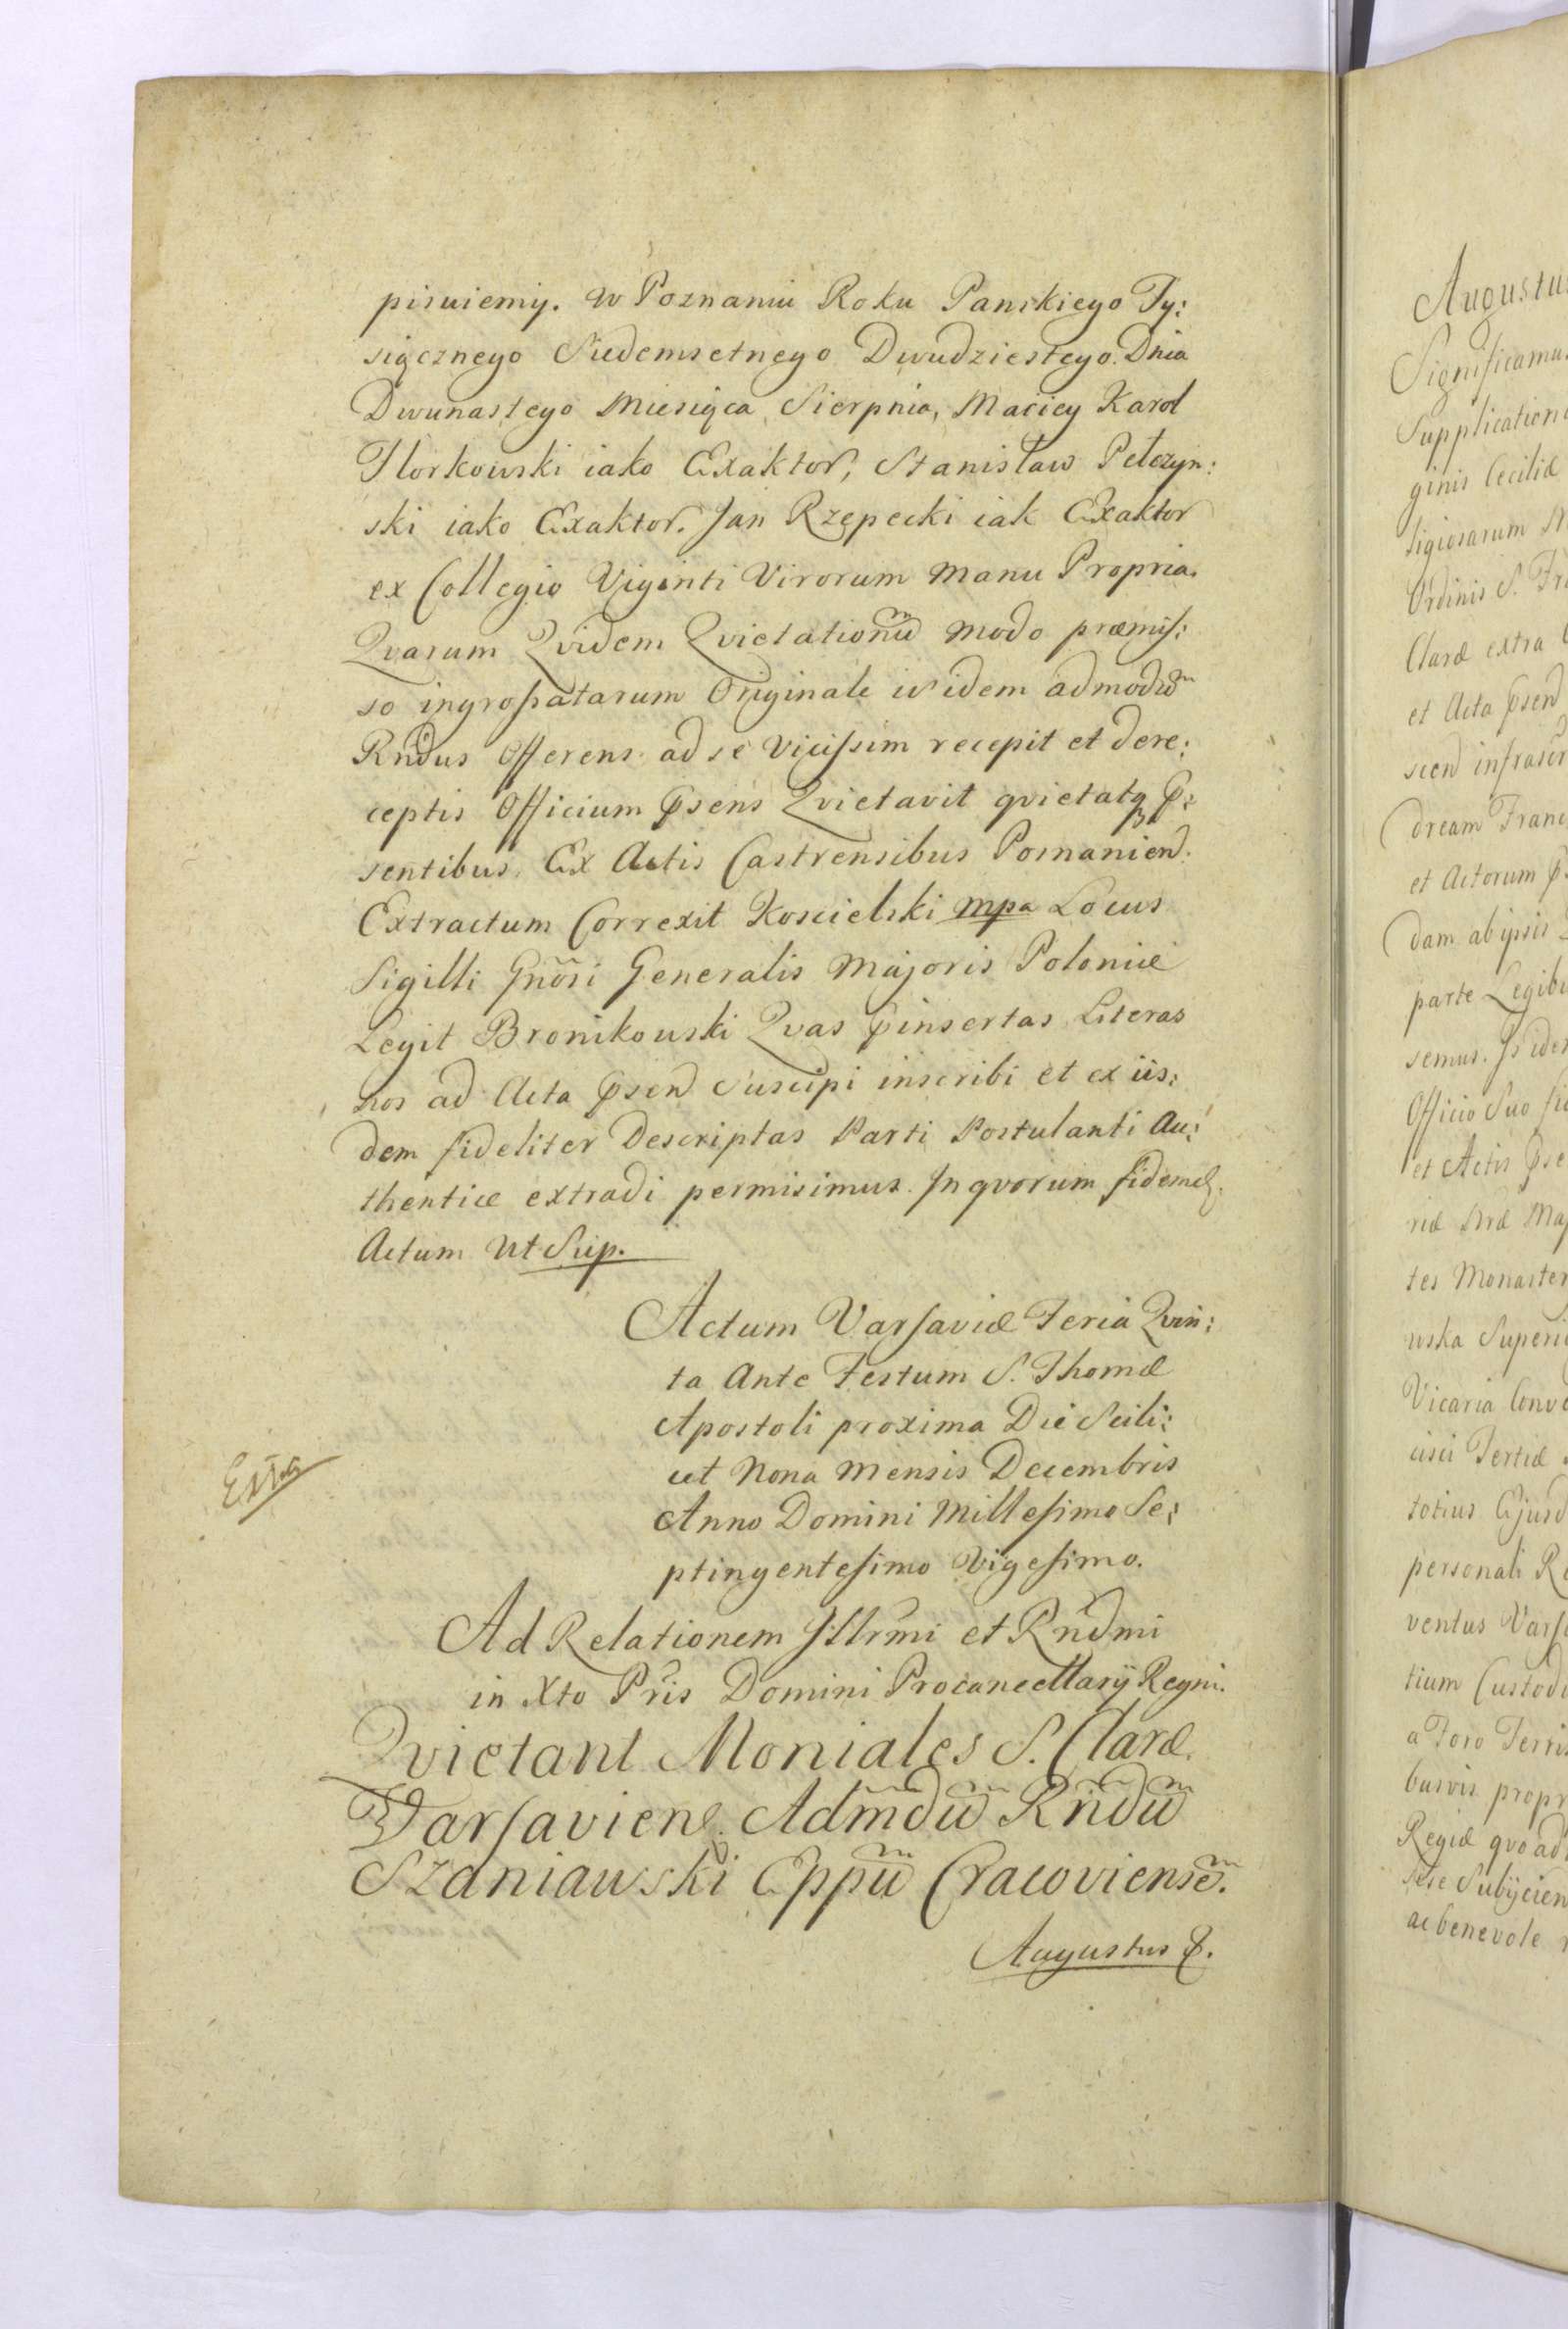 pisuiemy. W Poznaniu Roku Panskiego Ty:
siącznego Siedemsetnego Dwudziestego. Dnia
Dwunastego Miesiąca Sierpnia, Maciey Karol
Florkowski iako Exaktor, Stanisław Pełczyn:
ski iako Exaktor. Jan Rzepecki iak Exaktor
ex Collegio Viginti Virorum Manu Propria.
Qvarum Qvidem Qvietationũ modo præmis:
so ingrossatarum Originale is idem admodũ
Rndus Offerens ad se vicissim recepit et de re:
ceptis Officium psens Qvietavit qvietatq p:
sentibus. Ex Actis Castrensibus Posnanien.
Extractum Correxit Koscielski mpa Locus
Sigilli Gnõsi Generalis Majoris Poloniæ
Legit Bronikowski Qvas pinsertas Literas
nos ad Acta psen Suscipi inscribi et ex iis:
dem fideliter Descriptas Parti Postulanti Au:
thenticæ extradi permisimus. In qvorum fidem &.
Actum Ut Sup.
Actum Varsaviæ Feria Qvin:
ta Ante Festum S. Thomæ
Apostoli proxima Die Scili:
cet Nona Mensis Decembris
Anno Domini Millesimo Se:
ptingentesimo Vigesimo.
Exta
Ad Relationem Illrmi et Rndmi
in Xto Pris Domini Procancellarij Regni.
Qvietant Moniales S. Claræ
Varsavien. Admdũ Rndũ
Szaniawski Eppũ Cracoviensẽ.
Augustus &.
Augustus
Significamus
Supplication
ginis Ceciliæ
ligiosarum
Ordinis S. Fra
Claræ extra
et Acta psen
scen infrascr
dream Franc
et Actorum
dam ab ipsis
parte Legibu
semus. Is idem
Officio Suo
et Actis pse
riæ Sræ Maj
tes Monaster
wska Superi
Vicaria Conve
cisci Tertiæ
totius Ejusd
personali Re
ventus Varsa
tium Custodi
a Foro Terris
busvis propr
Regiæ qvo ad
sese Subijcien
ac benevole